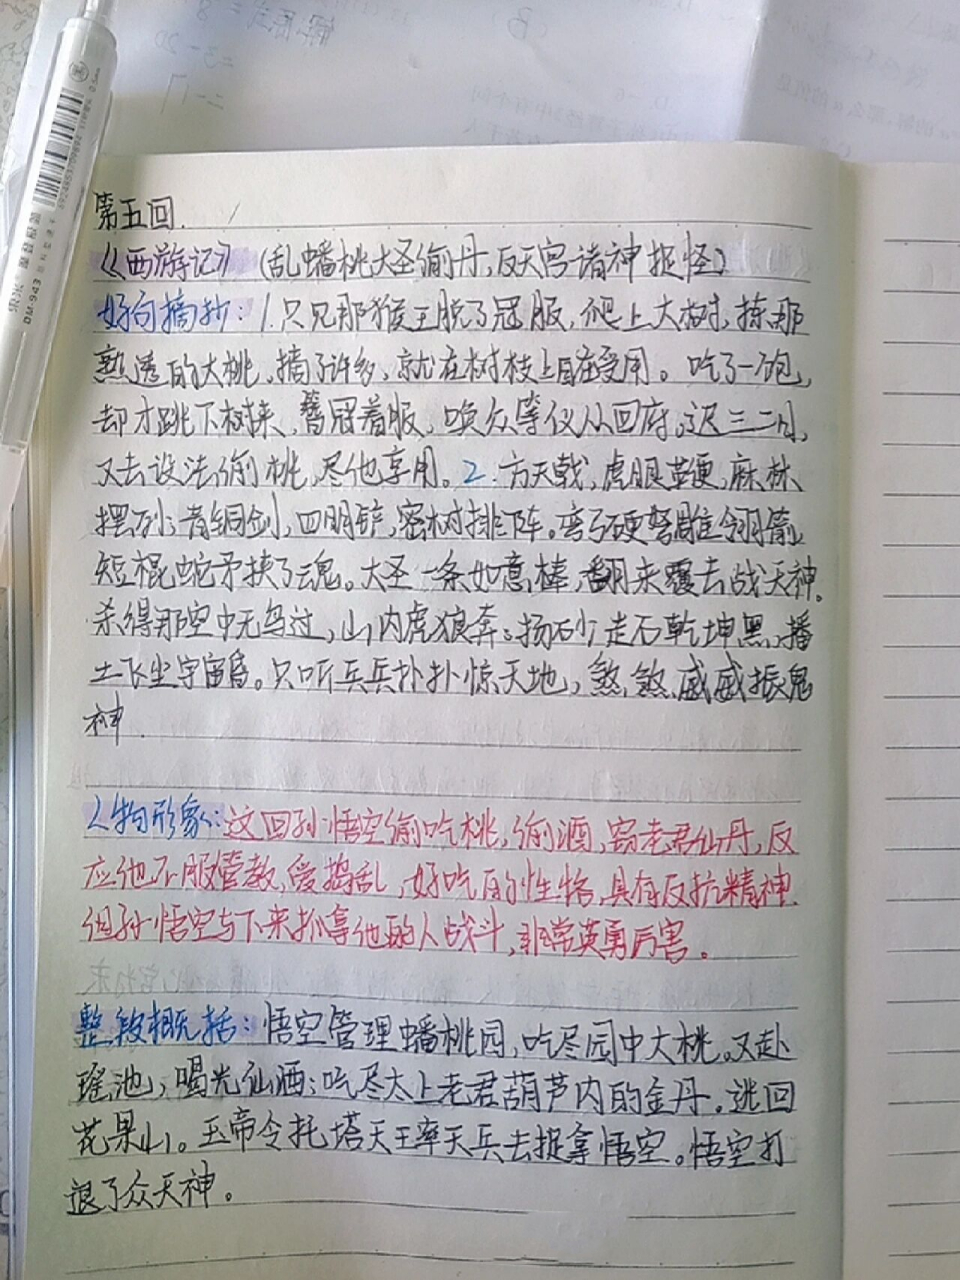 第五回.
《西游记》(乱蟠桃大圣偷丹,反天宫诸神捉怪)
好句摘抄：1.只见那猴王脱了冠服,爬上大树,拣那
熟透的大桃,摘了许多,就在树枝上自在受用。吃了一饱,
却才跳下树来,簪冠着服,唤众等仪从回府。迟三二日,
又去设法偷桃,尽他享用。2.方天戟,虎眼鞭,麻林
摆列；青铜剑,四明铲,密树排阵。弯弓硬弩雕翎箭,
短棍蛇矛挟了魂。大圣一条如意棒,翻来覆去战天神。
杀得那空中无鸟过,山内虎狼奔。扬砂走石乾坤黑,播
土飞尘宇宙昏。只听兵兵扑扑惊天地,煞煞威威振鬼
神.
人物形象：这回孙悟空偷吃桃,偷酒,窃老君仙丹,反
应他不服管教,爱捣乱,好吃的性格,具有反抗精神.
但孙悟空与下来抓拿他的人战斗,非常英勇厉害。
整段概括：悟空管理蟠桃园,吃尽园中大桃。又赴
瑶池,喝光仙酒；吃尽太上老君葫芦内的金丹。逃回
花果山。玉帝令托塔天王率天兵去捉拿悟空。悟空打
退了众天神。